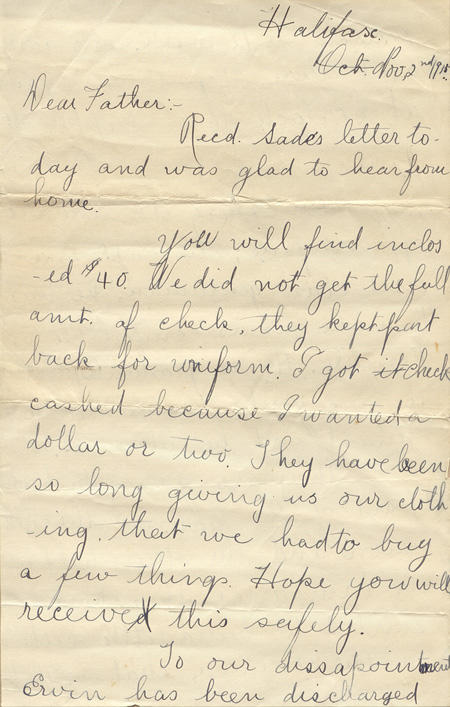 Halifax.
Oct. Nov, 2nd/915.
Dear Father:-
Recd. Sade's letter to-
day and was glad to hear from
home.
You will find inclos
-ed $40. We did not get the full
amt. of check, they kept part
back for uniform. I got it check
cashed because I wanted a
dollar or two. They have been
so long giving us our cloth
-ing, that we had to buy
a few things. Hope you will
receive this safely.
To our dissapointment
Ervin has been discharged